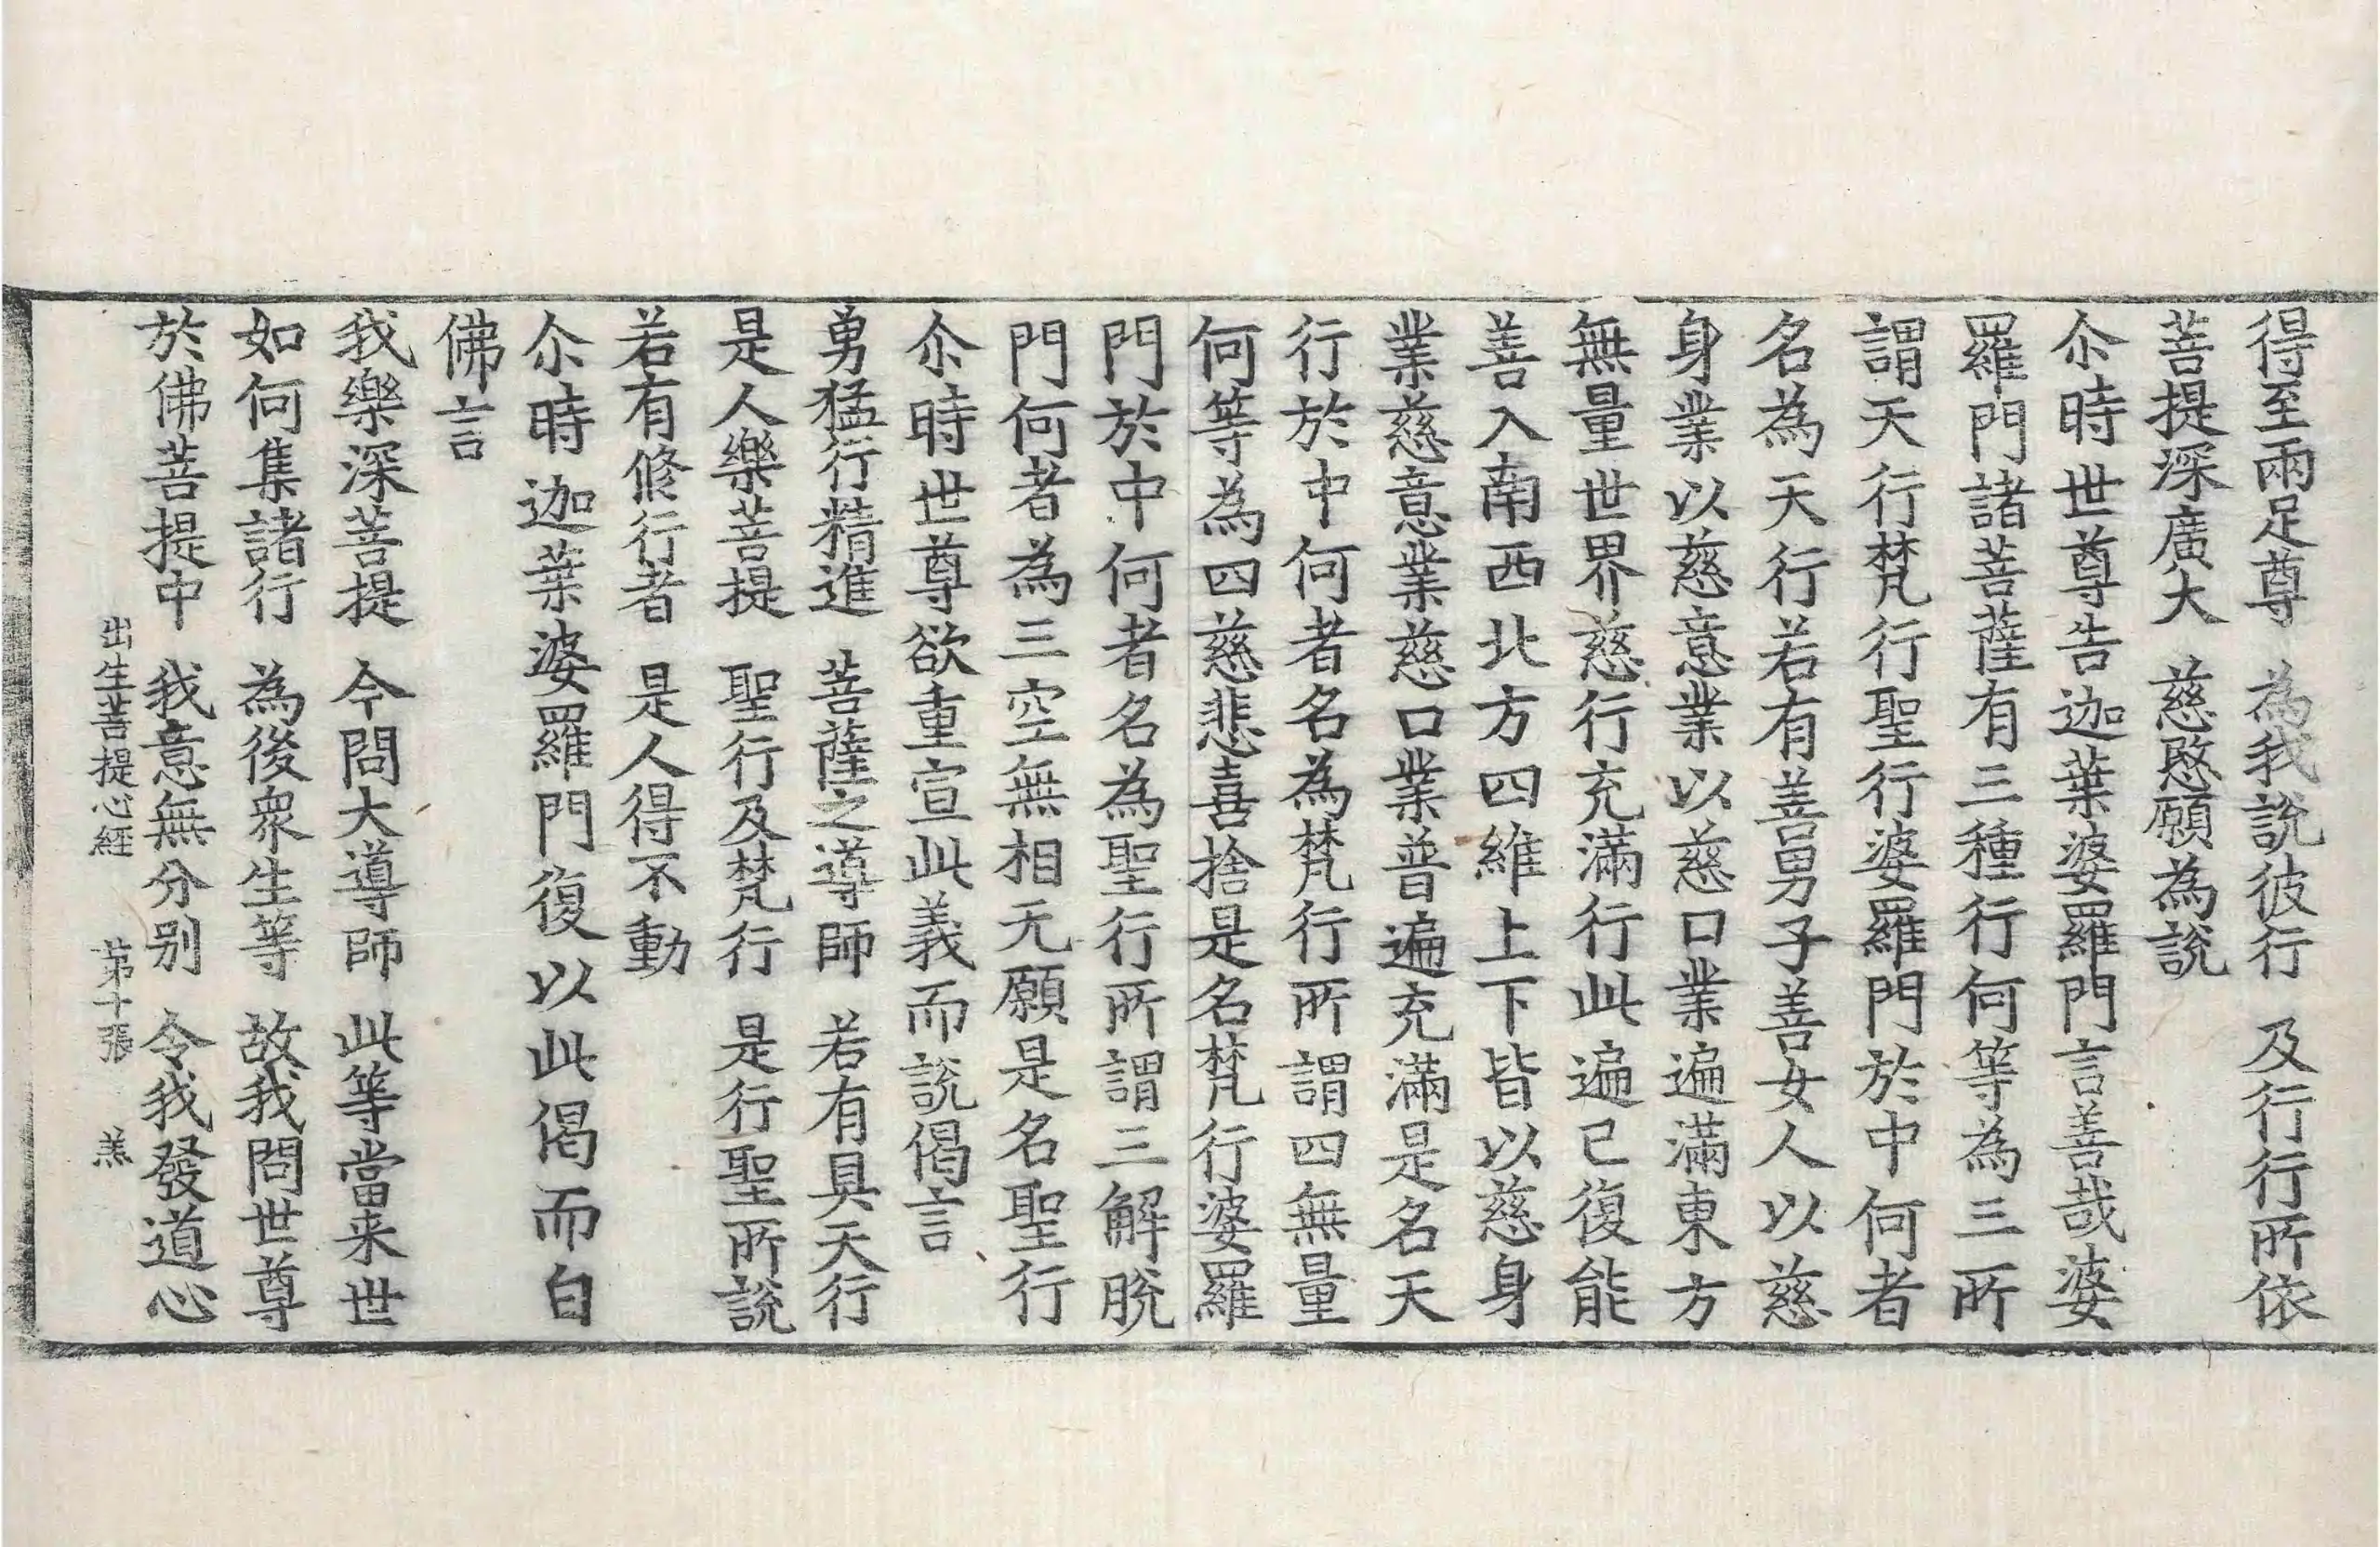 得至兩足尊　為我說彼行　及行行所依
菩提深廣大　慈愍願為說
尒時世尊告迦葉婆羅門言善哉婆
羅門諸菩薩有三種行何等為三所
謂天行梵行聖行婆羅門於中何者
名為天行若有善男子善女人以慈
身業以慈意業以慈口業遍滿東方
無量世界慈行充滿行此遍已復能
善入南西北方四維上下皆以慈身
業慈意業慈口業普遍充滿是名天
行於中何者名為梵行所謂四無量
何等為四慈悲喜捨是名梵行婆羅
門於中何者名為聖行所謂三解脫
門何者為三空無相无願是名聖行
尒時世尊欲重宣此義而說偈言
勇猛行精進　菩薩之導師　若有具天行
是人樂菩提　聖行及梵行　是行聖所說
若有修行者　是人得不動
尒時迦葉婆羅門復以此偈而白
佛言
我樂深菩提　今問大導師　此等當来世
如何集諸行　為後衆生等　故我問世尊
於佛菩提中　我意無分别　令我發道心
出生菩提心經　苐十張　羔